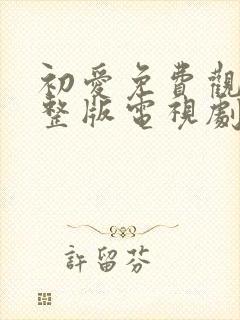 初愛免費觀
整版電視劇
許留芬